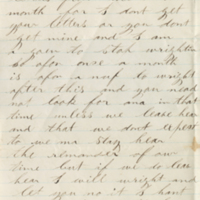 month for I dont get
your letters or you dont
get mine and I am
a goen to stop wrighten
so ofen once a month
is ofen a nuf to wright
after this and you nead
not look for ana in that
time unless we leave hear
and that we dont expect
to me ma stay hear
the remander of our
time but if we do leave
hear I will wright and
let you no it I hant